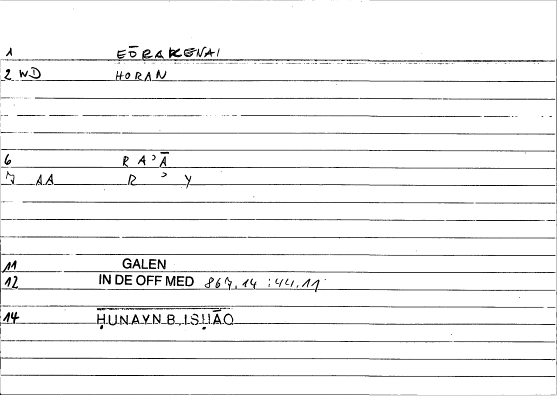 1 EŌRAKENAI
2 WD HORAN
6 R A ʾ Ā
7 AA R ʾ Y
11 GALEN
12 IN DE OFF MED 867,14 : 44.11
14 ḤUNAYN B. ISḤĀQ